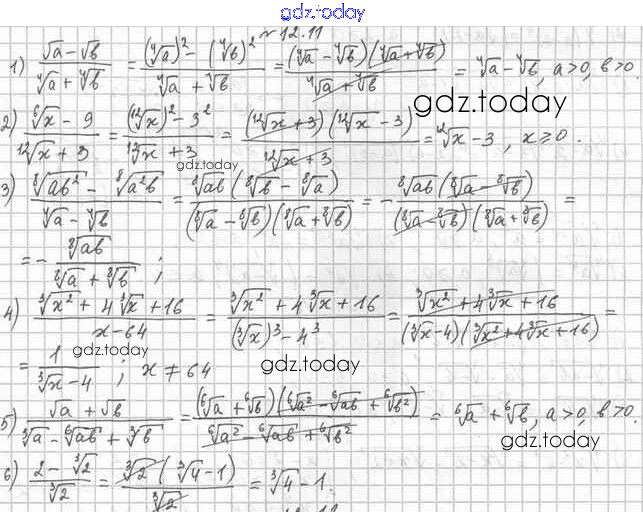 gdz.today
№ 12.11
1) (√a − √b)/(⁴√a + ⁴√b) = ((⁴√a)² − (⁴√b)²)/(⁴√a + ⁴√b) = ((⁴√a − ⁴√b)(⁴√a + ⁴√b))/(⁴√a + ⁴√b) = ⁴√a − ⁴√b, a>0, b>0
gdz.today
2) (⁶√x − 9)/(¹²√x + 3) = ((¹²√x)² − 3²)/(¹²√x + 3) = ((¹²√x + 3)(¹²√x − 3))/(¹²√x + 3) = ¹²√x − 3, x ≥ 0.
gdz.today
3) (⁸√ab² − ⁸√a²b)/(⁴√a − ⁴√b) = (⁸√ab (⁸√b − ⁸√a))/((⁸√a − ⁸√b)(⁸√a + ⁸√b)) = − (⁸√ab (⁸√a − ⁸√b))/((⁸√a − ⁸√b)(⁸√a + ⁸√b)) =
= − ⁸√ab/(⁸√a + ⁸√b) ;
4) (³√x² + 4³√x + 16)/(x − 64) = (³√x² + 4³√x + 16)/((³√x)³ − 4³) = (³√x² + 4³√x + 16)/((³√x − 4)(³√x² + 4³√x + 16)) =
gdz.today
gdz.today
= 1/(³√x − 4) ; x ≠ 64
5) (√a + √b)/(³√a − ⁶√ab + ³√b) = ((⁶√a + ⁶√b)(⁶√a² − ⁶√ab + ⁶√b²))/(⁶√a² − ⁶√ab + ⁶√b²) = ⁶√a + ⁶√b, a>0, b>0.
gdz.today
6) (2 − ³√2)/³√2 = (³√2 (³√4 − 1))/³√2 = ³√4 − 1.